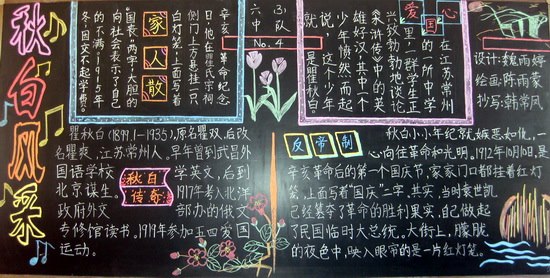 秋白风采
辛亥革命纪念
日,他在瞿氏宗祠
侧门上方悬挂一只
白灯笼,上面写着
家人散
“国丧”两字,大胆的
向社会表示了自己
的不满。1915年
冬,因交不起学费,
六(3)中队
No.4
爱国心
在江苏常州
的一所中学
里,一群学生正
兴致勃勃地谈论
《水浒传》中的英
雄好汉,其中一个
少年愤然而起
说,这个少年
就是瞿秋白
设计:魏雨婷
绘画:陈雨蒙
抄写:韩常风
瞿秋白(1899.1-1935),原名瞿双,后改
名瞿爽,江苏常州人。早年曾到武昌外
国语学校学英文,后到
北京谋生。1917年考入北洋
政府外交部办的俄文
专修馆读书。1919年参加五四爱国
运动。
秋白传奇
反帝制
秋白小小年纪就嫉恶如仇,一
心向往革命和光明。1912年10月10日,是
辛亥革命后的第一个国庆节,家家门口都挂着红灯
笼,上面写着“国庆”二字,其实,当时袁世凯
已经篡夺了革命的胜利果实,自己做起
了民国临时大总统。大街上,朦胧
的夜色中,映入眼帘的是一片红灯
笼。